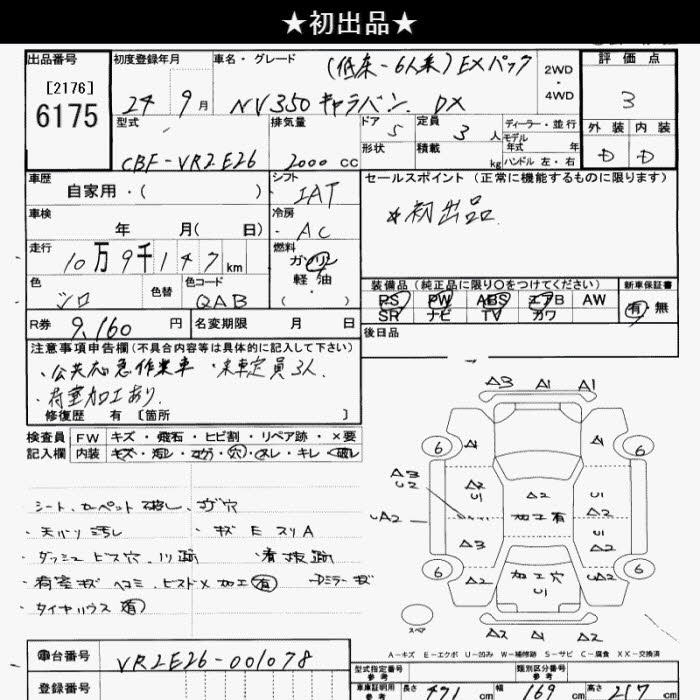 ★初出品★
出品番号 初度登録年月 車名・グレード (低床-6人乗) EXパック 2WD・4WD 評価点
[2176] 6175 24 9月 NV350キャラバン DX 3
型式 排気量 ドア 5 定員 3人 ディーラー・並行 モデル年式 年 外装 内装
CBF-VR2E26 2000cc 形状 積載 kg ハンドル 左・右 D D
車歴 自家用・( ) シフト IAT セールスポイント (正常に機能するものに限ります)
車検 年 月( 日) 冷房 AC *初出品
走行 10万9千147km 燃料 ガソリン 軽油 ・( )
色 シロ 色替 色コード QAB 装備品 (純正品に限り○をつけてください) 新車保証書
PS PW ABS エアB AW 有 無
SR ナビ TV カワ
R券 9,160円 名変期限 月 日 後日品
注意事項申告欄 (不具合内容等は具体的に記入して下さい)
・公共応急作業車 ・乗車定員3人.
・荷室加工あり.
修復歴 有 [箇所 ]
検査員 FW キズ・飛石・ヒビ割・リペア跡・×要
記入欄 内装 キズ・汚レ・コゲ・穴・スレ・キレ・破レ
シート、カーペット 破レ、コゲ穴
・天バリ 汚レ ・キズ E スリ A
・ダッシュ ビス穴、ノリ跡
・荷室キズ ヘコミ、ビスドメ 加工有 Dミラーキズ
・タイヤハウス 有
A3 A1 A1
6 A1 A1 6
A3 U2 A2 U1 A2 U1
UA2 加工有 A2
A3 U1 A2
6 A2 加工穴 U1 UA2 6
スペア A2 A2 A1
A-キズ E-エクボ U-凹み W-補修跡 S-サビ C-腐食 XX-交換済
車台番号 VR2E26-001078
型式指定番号 参考 類別区分番号 参考
登録番号 車庫証明用 参考 長さ 471cm 幅 169cm 高さ 217cm